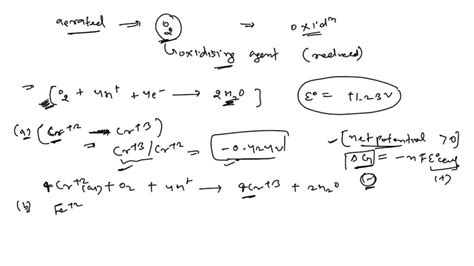 aerated → O2 → oxidn
↳ oxidising agent (reduced)
⇒ [O2 + 4H+ + 4e- → 2H2O] E° = +1.23V
(a) (Cr+2 → Cr+3)
⇒ Cr+3/Cr+2 = -0.424V
[net potential > 0]
ΔG = -nFE°cell
(-) (+)
4Cr+2(aq) + O2 + 4H+ → 4Cr+3 + 2H2O
(b) Fe+2